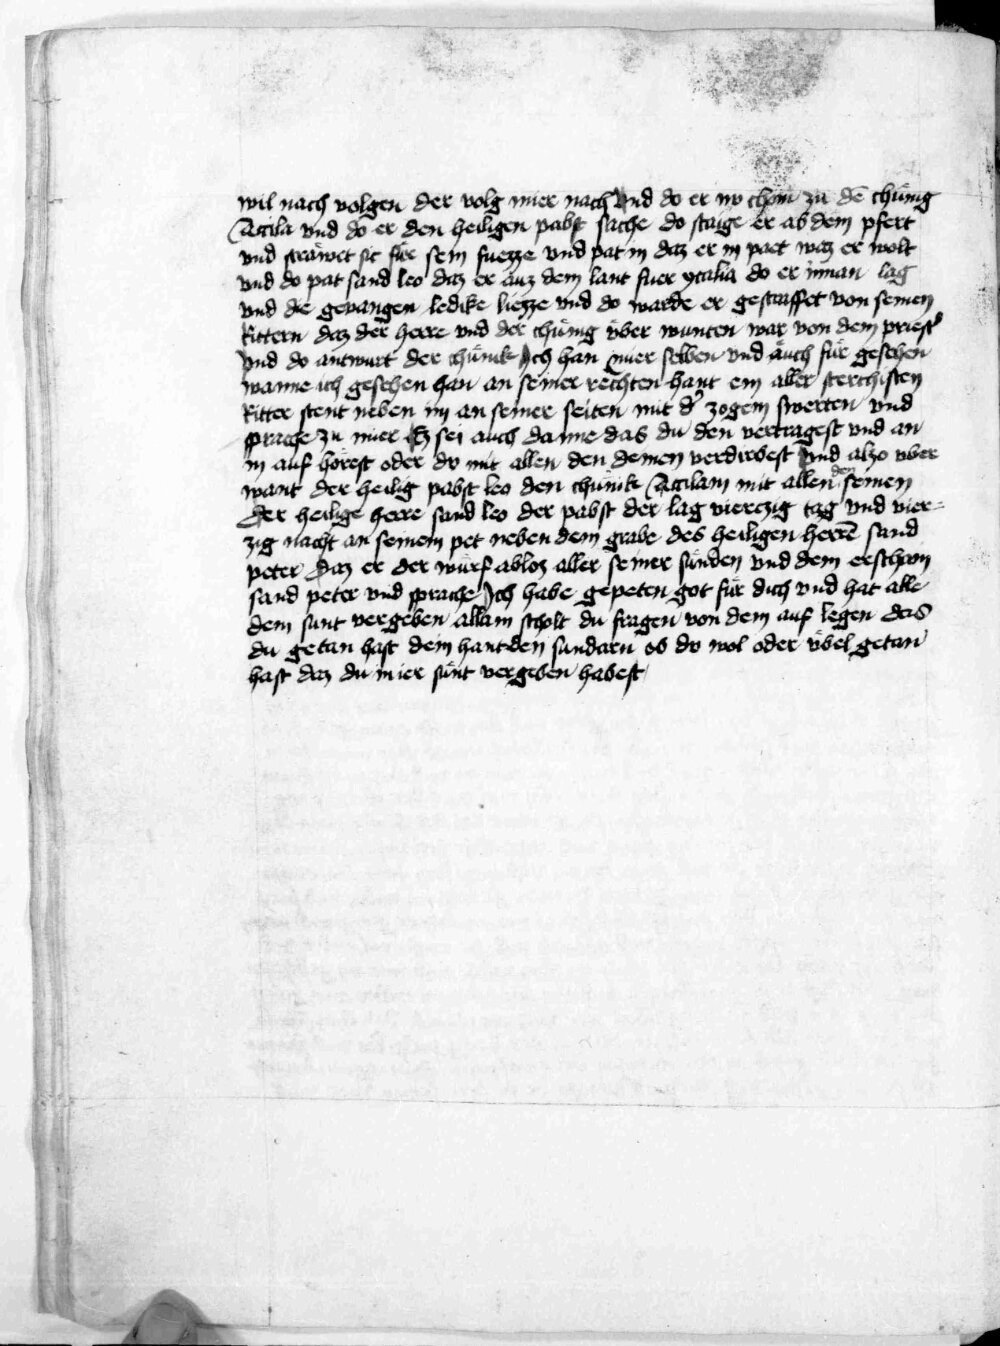 wil nach volgen der volg mier nach Und do er nv chom zu dē chüͤnig
Attila vnd do er den heiligen pabst sache do staige er ab dem pfert
vnd sträwet sic für sein fuezze vnd pat in daz er in paet waz er wolt
vnd do pat sand leo daz er auz dem lant fuer ytalia do er inman lag
vnd die gevangen ledike liezze vnd do warde er gestraffet von seinen
Rittern daz der herre vnd der chüͤnig vͤber wunten war von dem priest̉
Und do antwurt der chüͤnik Ich han mier selben vnd auch für gesehen
wanne ich gesehen han an seiner rechten hant ein aller sterchisten
Ritter stent neben im an seiner seiten mit d̉ zogem swerten vnd
sprach zu mier Ez sei auch danne das du den vertragest vnd an
in auf hörest oder dv mit allen den deinen verdirbest Und alzo vber
want der heilig pabst leo den chüͤnik Attilam mit allen den seinen
Der heilige herre sand leo der pabst der lag vierczig tag vnd vier-
zig nacht an seinem pet neben dem grabe des heiligen herrē sand
peter Daz er der wurf abloz aller seiner sünden vnd dem erschain
sand peter vnd sprache Ich habe gepeten got für dich vnd hat alle
dein sunt vergeben allain scholt du fragen von dem auf legen das
du getan hast dein hant den sundarn ob dv wol oder vͤbel getan
hast daz du mier sünt vergeben habest